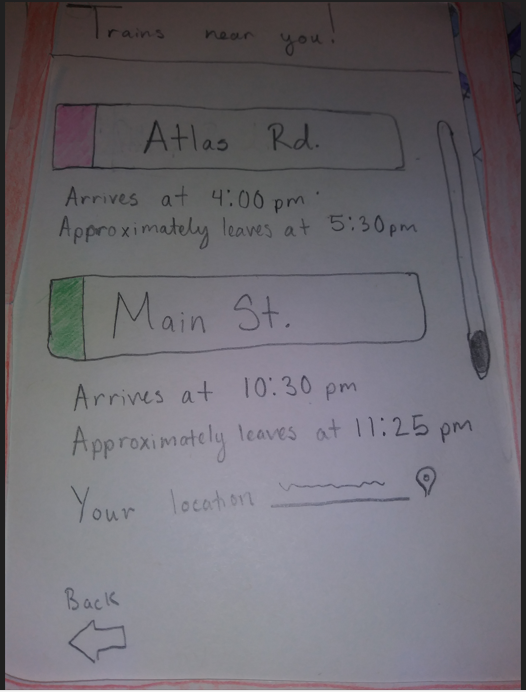 Trains near you!
Atlas Rd.
Arrives at 4:00 pm
Approximately leaves at 5:30pm
Main St.
Arrives at 10:30 pm
Approximately leaves at 11:25 pm
Your location
Back